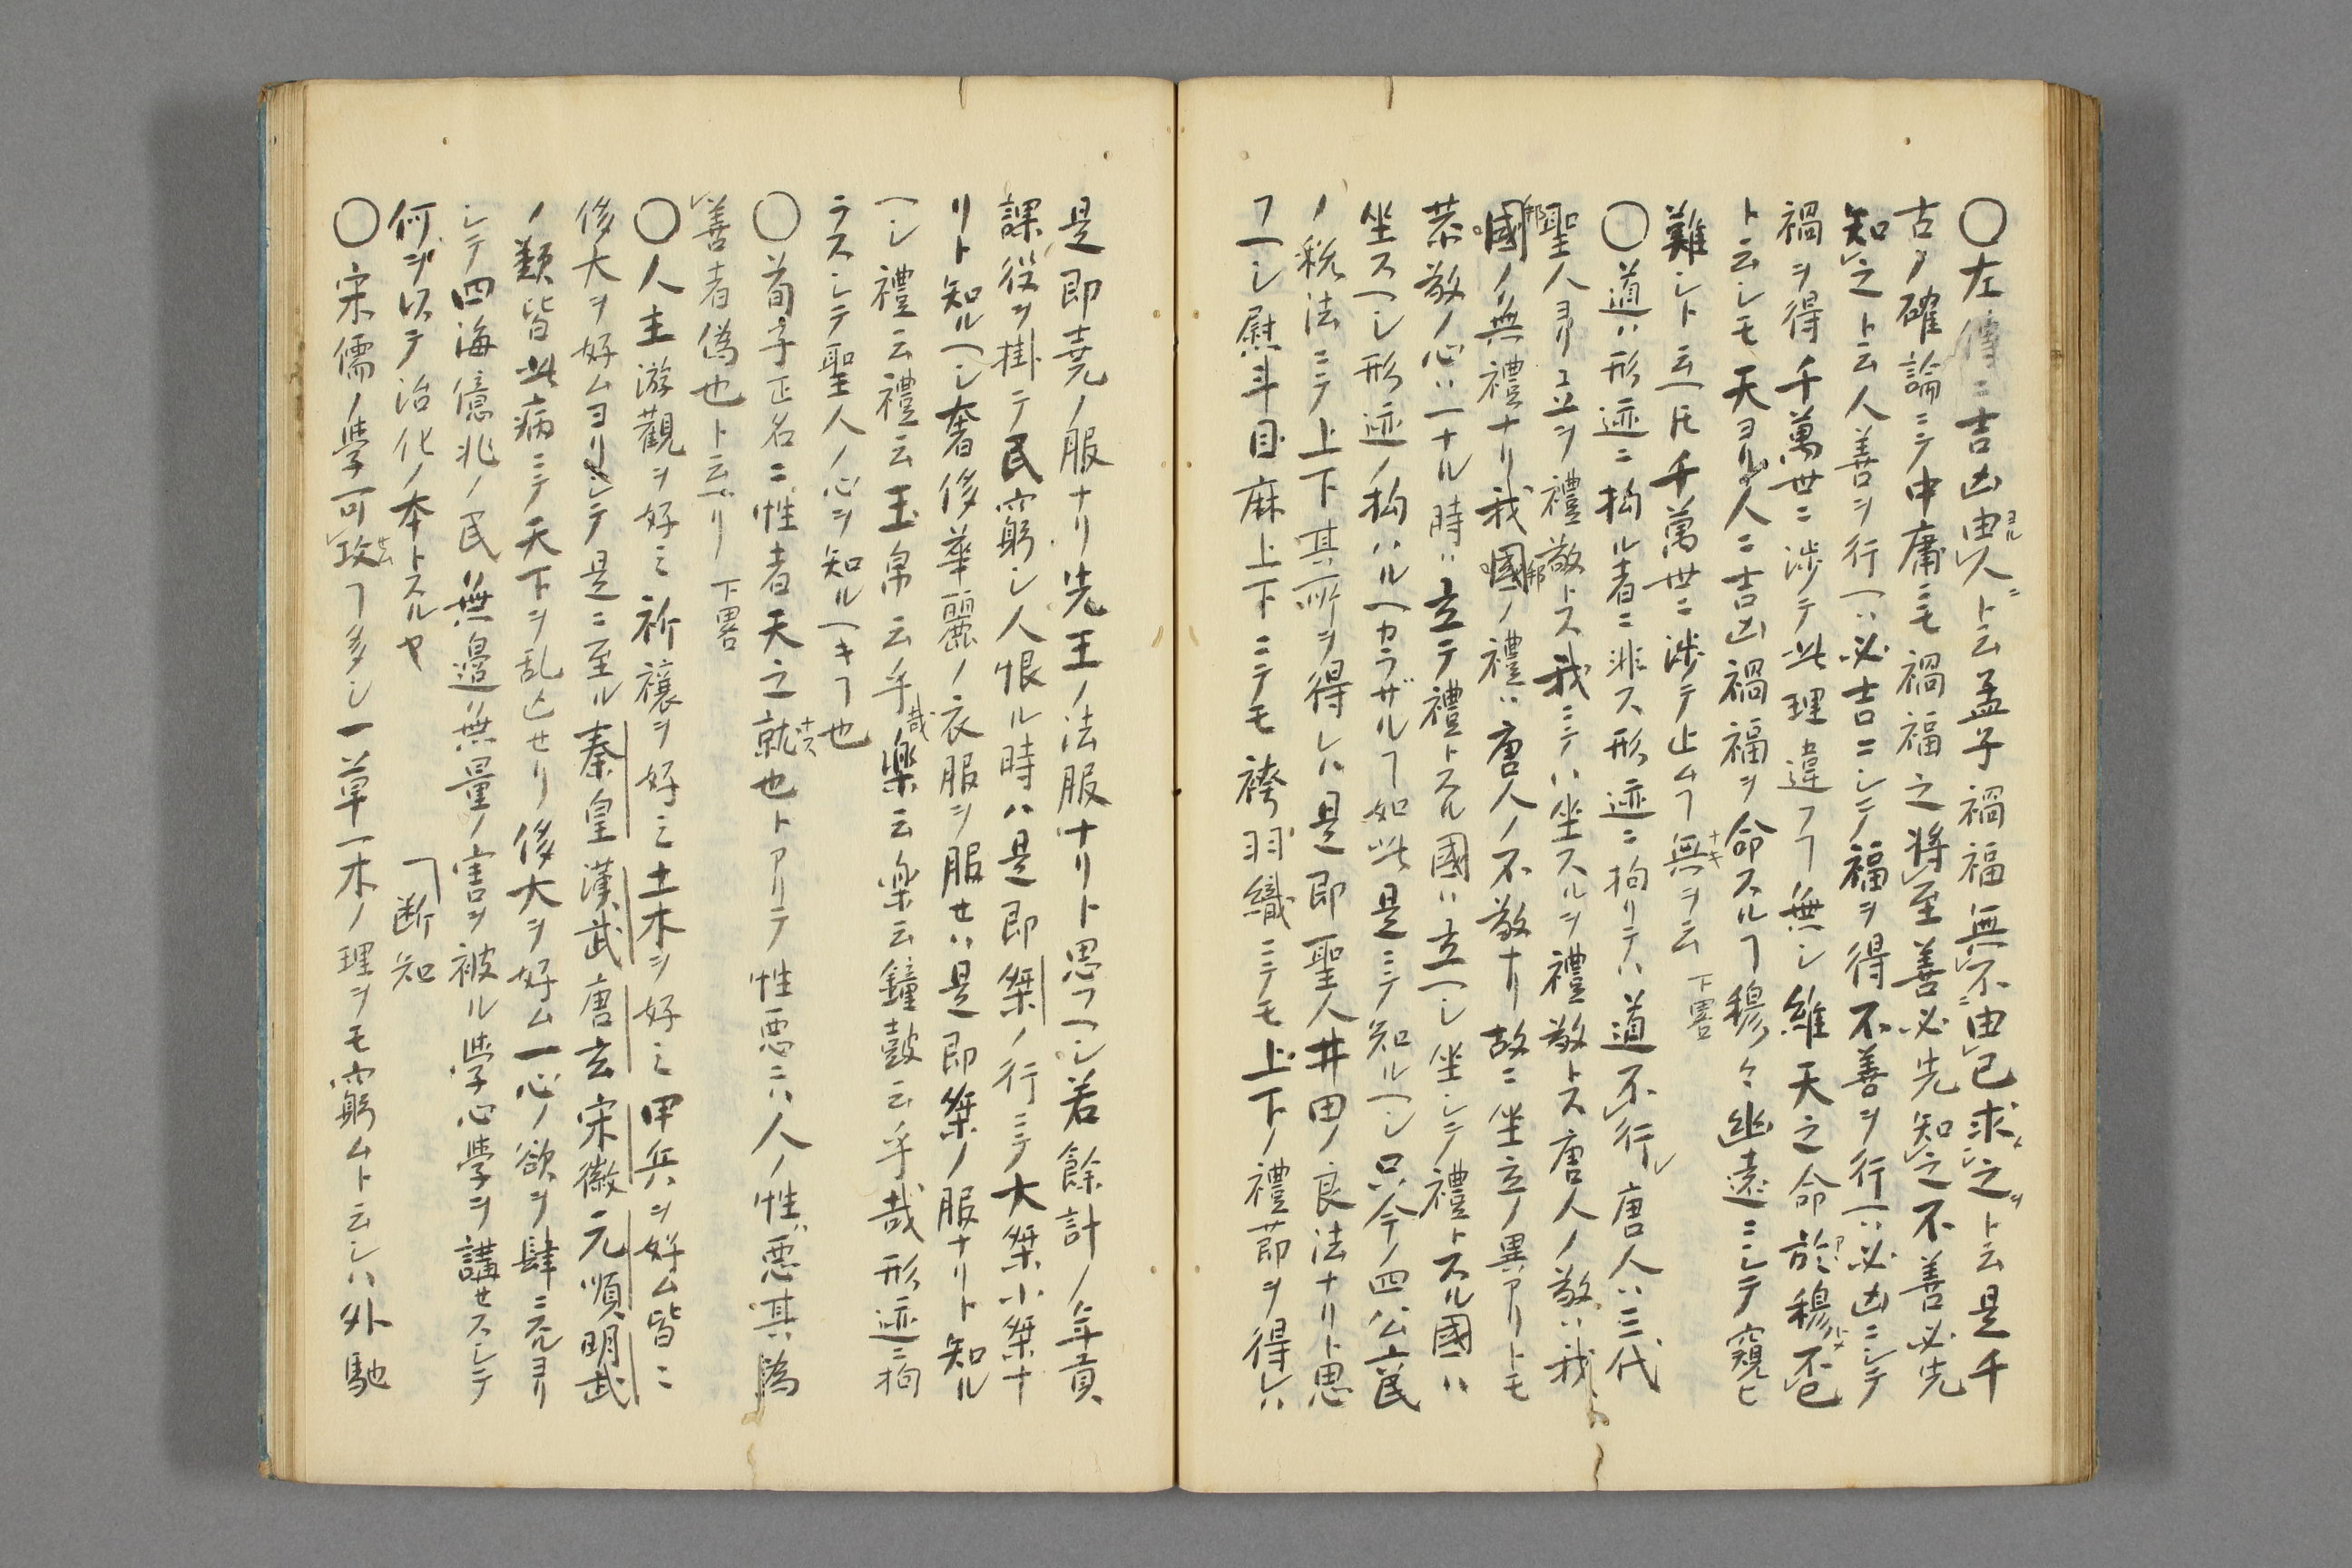 〇左傳ニ吉凶由人ト云孟子禍福無不由己求之ト云是千
古ノ確論ニテ中庸ニモ禍福之將至善必先知之不善必先
知之ト云人善ヲ行ヘハ必吉ニシテ福ヲ得不善ヲ行ヘハ必凶ニシテ
禍ヲ得千萬世ニ渉テ此理違フヿ無シ維天之命於穆不已
ト云シモ天ヨリ人ニ吉凶禍福ヲ命スルヿ穆々幽遠ニシテ窺ヒ
難シト云ヘ𪜈千萬世ニ渉テ止ムヿ無ヲ云 下畧
〇道ハ形迹ニ拘ル者ニ非ス形迹ニ拘リテハ道不行唐人ハ三代
聖人ヨリ立ヲ禮敬トス我邦ニテハ坐スルヲ禮敬トス唐人ノ敬ハ我
國ノ無禮ナリ我國ノ禮ハ唐人ノ不敬ナリ故ニ坐立ノ異アリトモ
恭敬ノ心ハ一ナル時ハ立テ禮トスル國ハ立ヘシ坐シテ禮トスル國ハ
坐スヘシ形迹ノ拘ハルヘカラザルヿ如此是ニテ知ルヘシ只今ノ四公六民
ノ税法ニテ上下其所ヲ得レハ是即聖人井田ノ良法ナリト思
フヘシ熨斗目麻上下ニテモ袴羽織ニテモ上下ノ禮莭ヲ得レハ
是即堯ノ服ナリ先王ノ法服ナリト思フヘシ若餘計ノ年貢
課役ヲ掛テ民窮シ人恨ル時ハ是即桀ノ行ニテ大桀小桀ナ
リト知ルヘシ奢侈華麗ノ衣服ヲ服セハ是即桀ノ服ナリト知ル
ヘシ禮云禮云玉帛云乎哉樂云樂云鐘鼓云乎哉形迹ニ拘
ラスシテ聖人ノ心ヲ知ルヘキヿ也
〇荀子正名ニ性者天之就也トアリテ性悪ニハ人ノ性悪其
善者偽也ト云ヘリ 下畧
〇人主游觀ヲ好ミ祈禳ヲ好ミ土木ヲ好ミ甲兵ヲ好ム皆ニ
侈大ヲ好ムヨリシテ是ニ至ル秦皇漢武唐玄宋徽元順明武
ノ類皆此病ニテ天下ヲ乱亡セリ侈大ヲ好ム一心ノ欲ヲ肆ニ
シテ四海億兆ノ民無邉無量ノ害ヲ被ル學心學ヲ講セスシテ
何ヲ以テ治化ノ本トスルヤ
断知
〇宋儒ノ學可攻ヿ多シ一草一木ノ理ヲモ窮ムト云シハ外馳